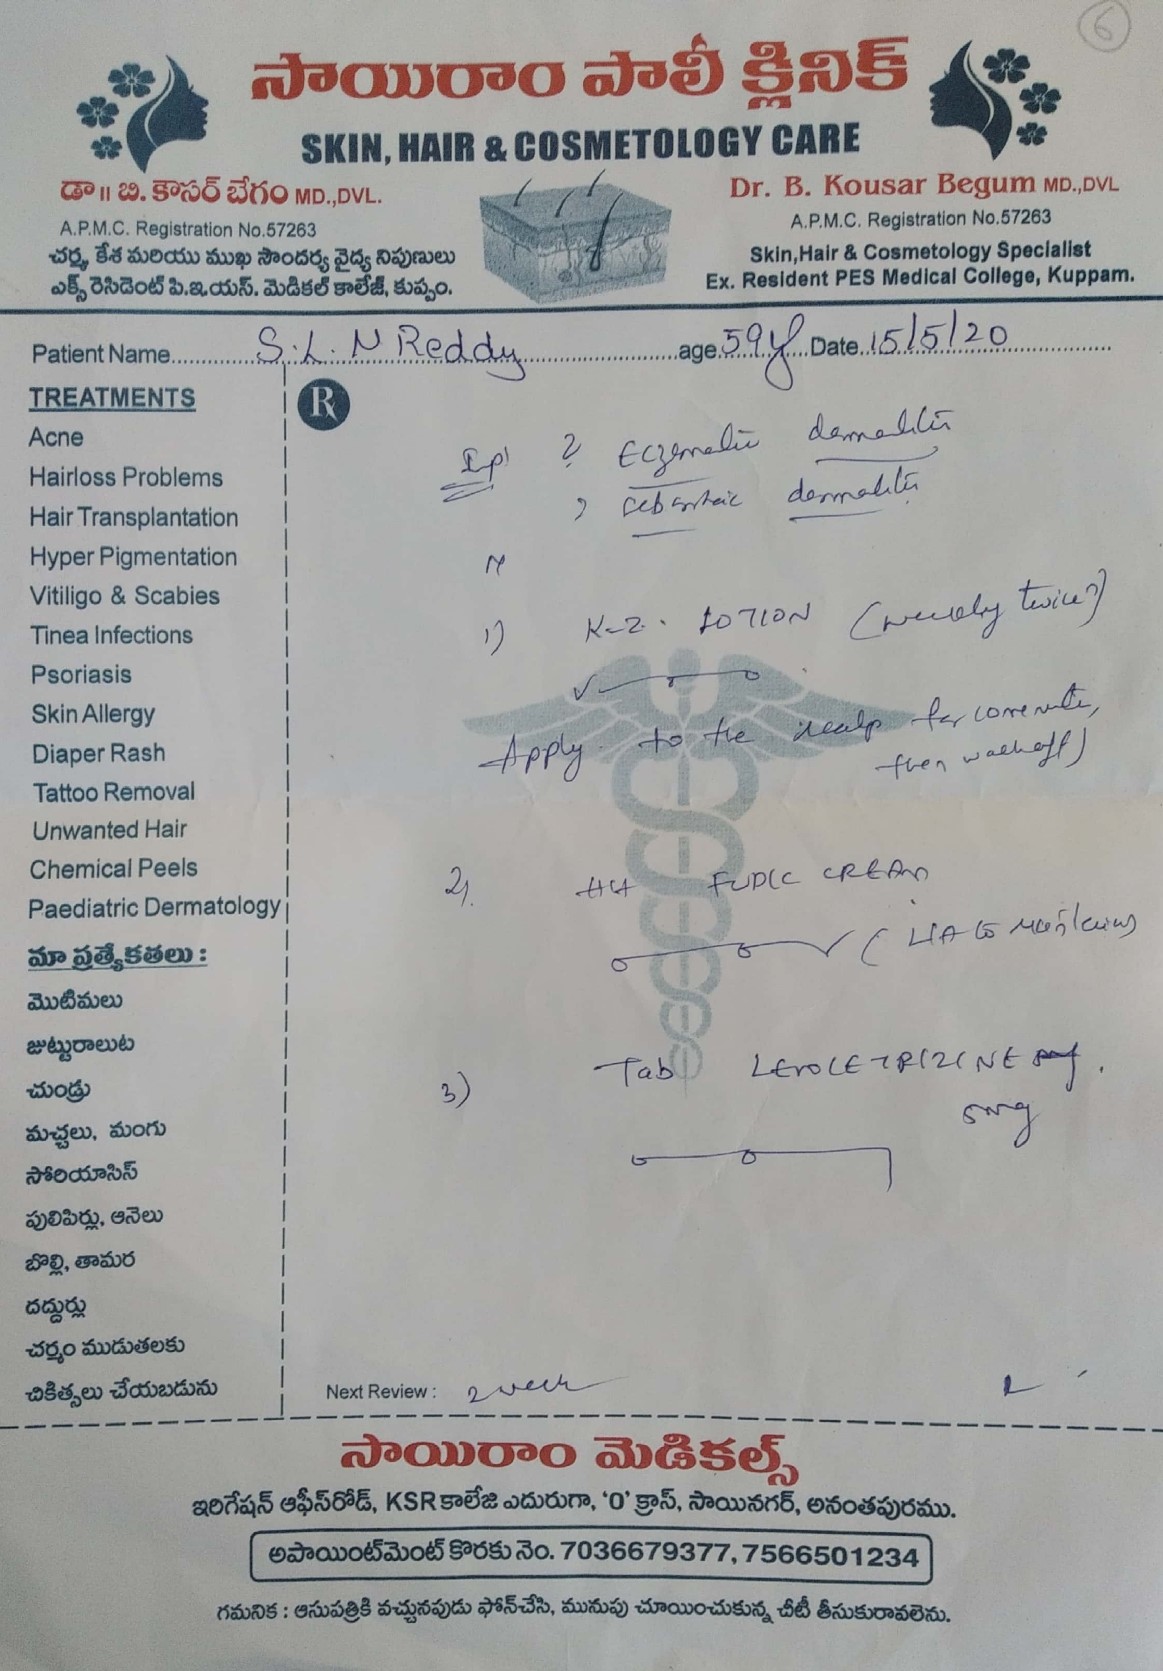 6
సాయిరాం పాలీ క్లినిక్
SKIN, HAIR & COSMETOLOGY CARE
డా॥ బి. కౌసర్ బేగం MD.,DVL.
A.P.M.C. Registration No.57263
చర్మ, కేశ మరియు ముఖ సౌందర్య వైద్య నిపుణులు
ఎక్స్ రెసిడెంట్ పి.ఇ.యస్. మెడికల్ కాలేజ్, కుప్పం.
Dr. B. Kousar Begum MD.,DVL
A.P.M.C. Registration No.57263
Skin,Hair & Cosmetology Specialist
Ex. Resident PES Medical College, Kuppam.
Patient Name S.L.N Reddy age 59y Date 15/5/20
TREATMENTS
Acne
Hairloss Problems
Hair Transplantation
Hyper Pigmentation
Vitiligo & Scabies
Tinea Infections
Psoriasis
Skin Allergy
Diaper Rash
Tattoo Removal
Unwanted Hair
Chemical Peels
Paediatric Dermatology
మా ప్రత్యేకతలు :
మొటిమలు
జుట్టురాలుట
చుండ్రు
మచ్చలు, మంగు
సోరియాసిస్
పులిపిర్లు, ఆనెలు
బొల్లి, తామర
దద్దుర్లు
చర్మం ముడుతలకు
చికిత్సలు చేయబడును
Rx
? Eczematic dermatitis
? seborrheic dermatitis
1) K-Z. LOTION (weekly twice)
Apply to the scalp for
then washoff)
2) FUDIC CREAM
3) Tab LEVOCETRIZINE
5mg
Next Review : 2 week
సాయిరాం మెడికల్స్
ఇరిగేషన్ ఆఫీస్‌రోడ్, KSR కాలేజి ఎదురుగా, '0' క్రాస్, సాయినగర్, అనంతపురము.
అపాయింట్‌మెంట్ కొరకు నెం. 7036679377, 7566501234
గమనిక : ఆసుపత్రికి వచ్చునపుడు ఫోన్‌చేసి, మునుపు చూయించుకున్న చీటీ తీసుకురావలెను.